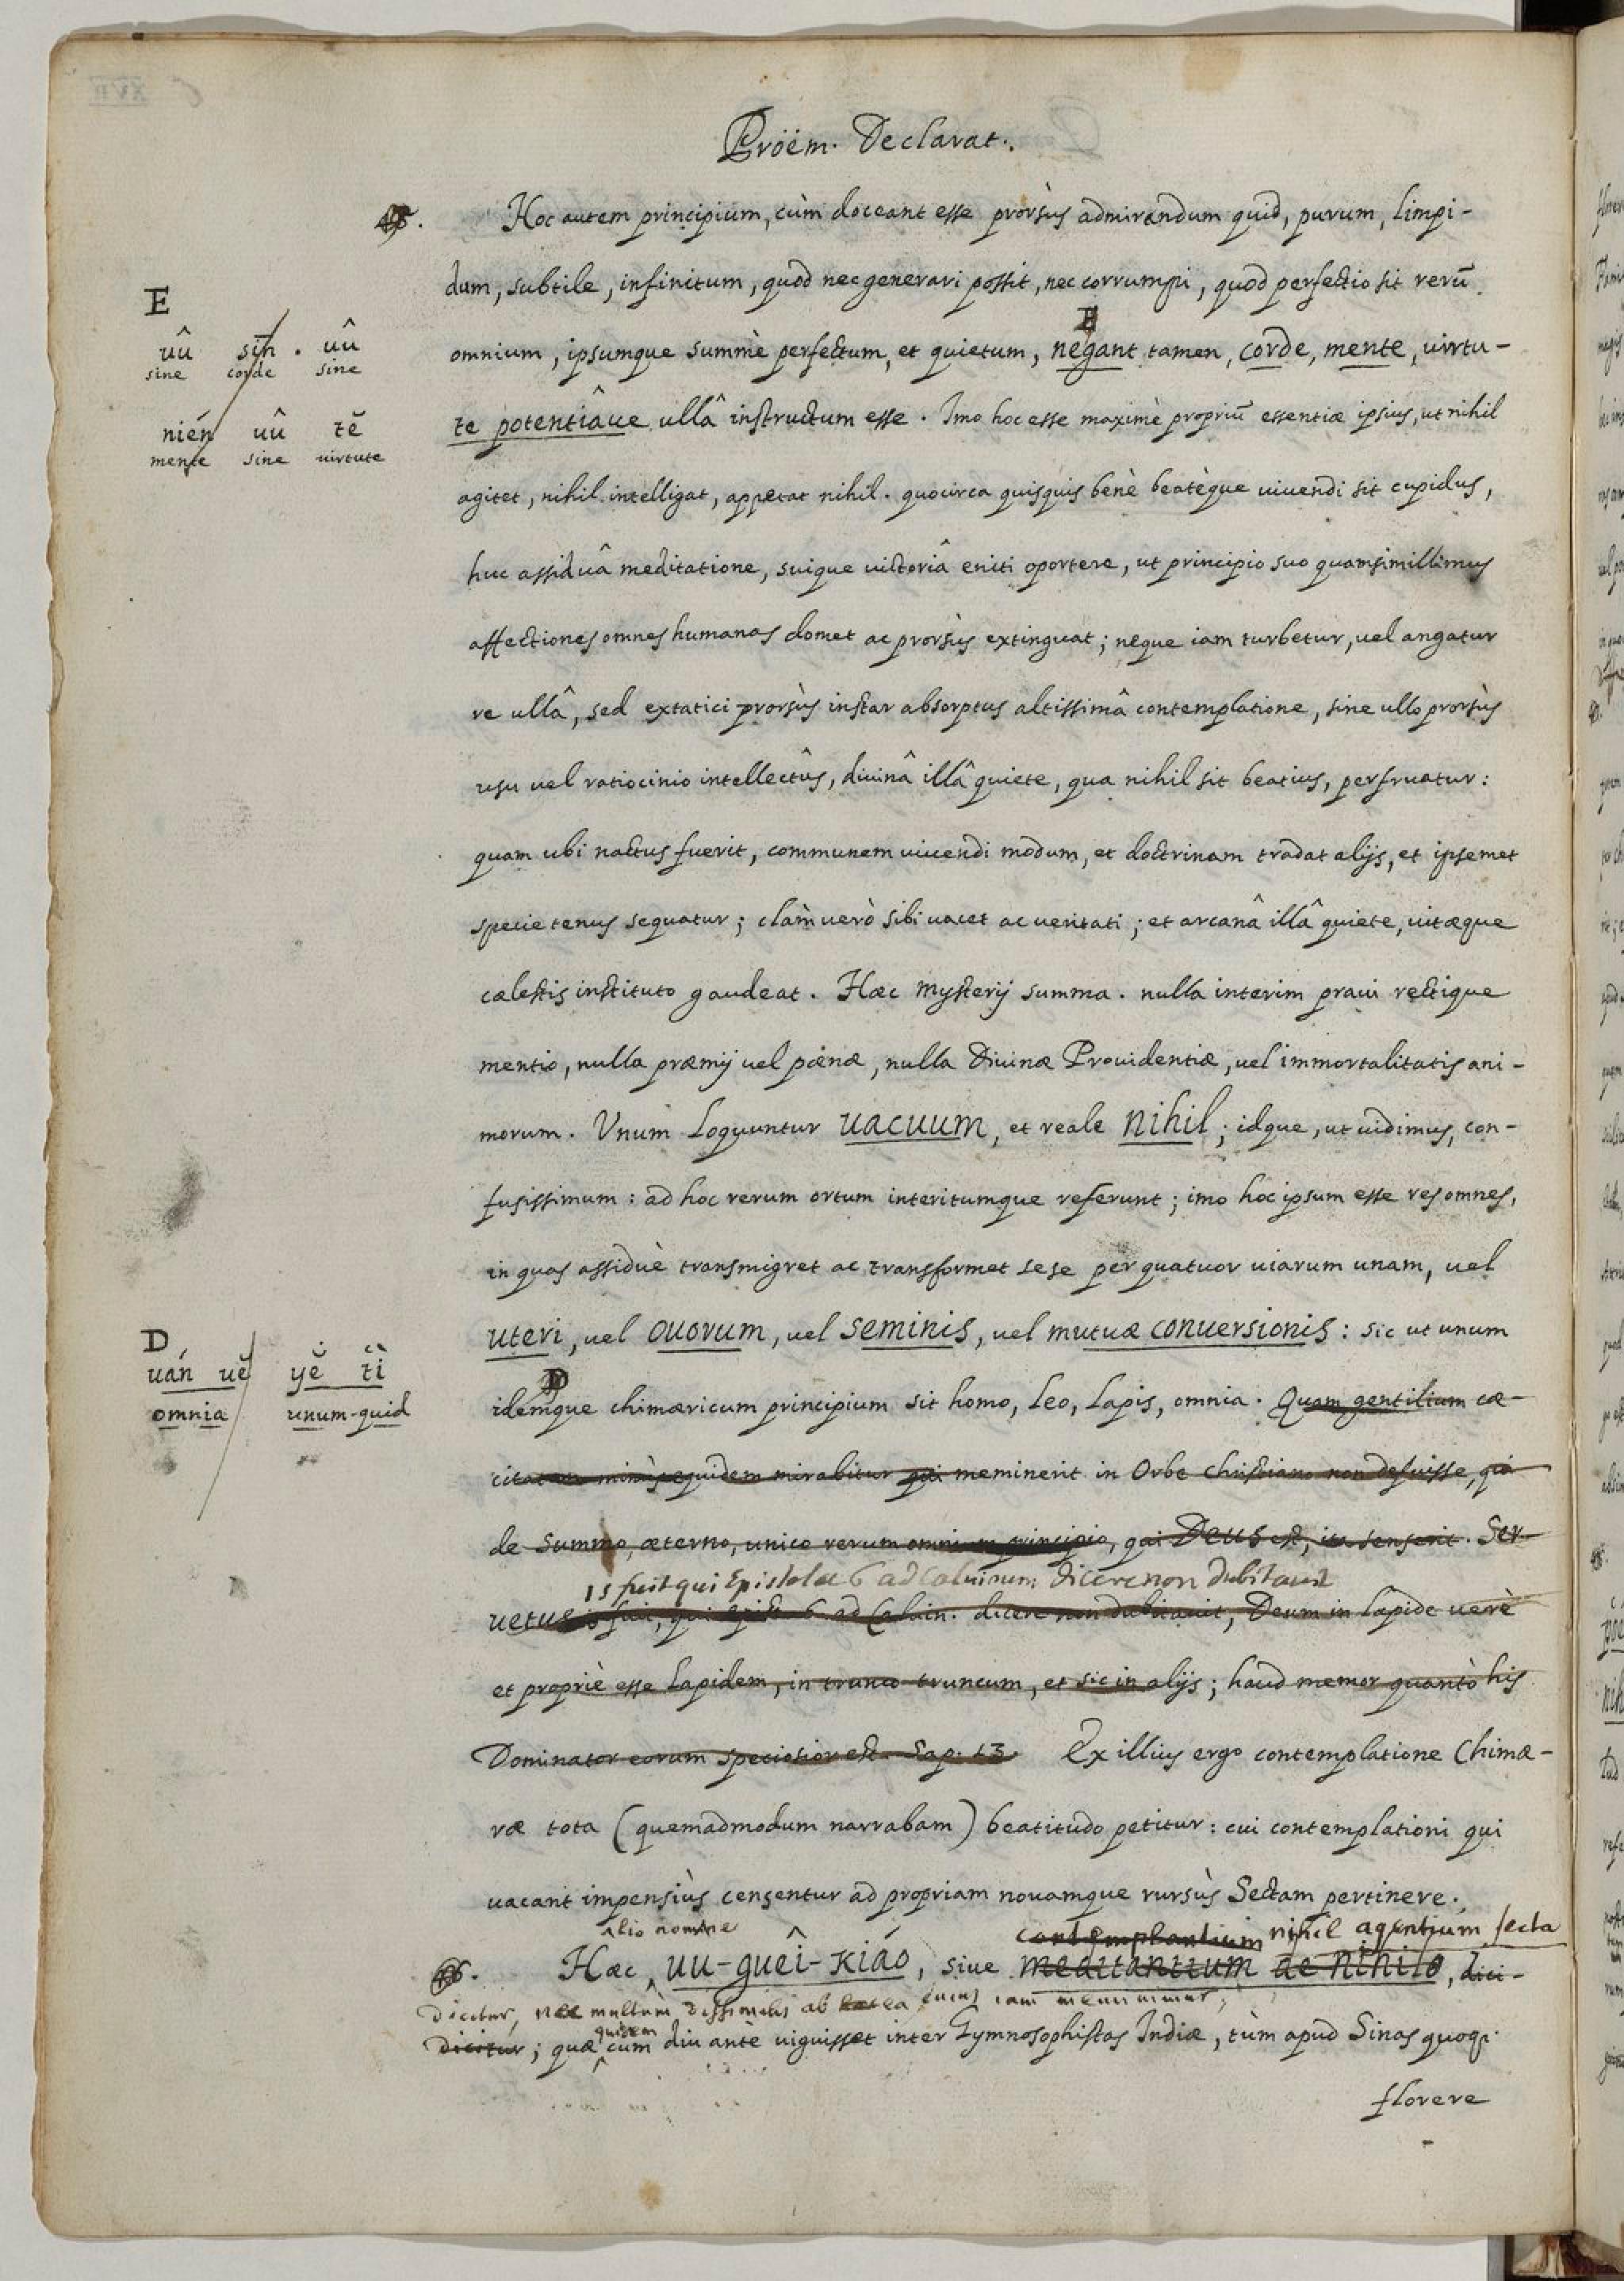 Proëm. Declarat.
Hoc autem principium, cùm doceant esse prorsùs admirandum quid, purum, limpi-
dum, subtile, infinitum, quod nec generari possit, nec corrumpi, quod perfectio sit rerū
E
omnium, ipsumque summè perfectum, et quietum, negant tamen, corde, mente, virtu-
te potentiâue ullâ instructum esse. Imo hoc esse maximè propriū essentiæ ipsius, ut nihil
agitet, nihil intelligat, appetat nihil. quocirca quisquis benè beatèque uiuendi sit cupidus,
huc assiduâ meditatione, suique uictoriâ eniti oportere, ut principio suo quamsimillimus
affectiones omnes humanas domet ac prorsùs extinguat; neque iam turbetur, uel angatur
re ullâ, sed extatici prorsùs instar absorptus altissimâ contemplatione, sine ullo prorsùs
usu uel ratiocinio intellectûs, diuinâ illâ quiete, qua nihil sit beatius, perfruatur:
quam ubi nactus fuerit, communem uiuendi modum, et doctrinam tradat alijs, et ipsemet
specie tenus sequatur; clàm uerò sibi uacet ac ueritati; et arcanâ illâ quiete, uitæque
cælestis instituto gaudeat. Hæc mysterij summa. nulla interim praui rectique
mentio, nulla præmij uel pœnæ, nulla Diuinæ Prouidentiæ, uel immortalitatis ani-
morum. Vnum loquuntur uacuum, et reale nihil; idque, ut uidimus, con-
fusissimum: ad hoc rerum ortum interitumque referunt; imo hoc ipsum esse res omnes,
in quas assiduè transmigret ac transformet sese per quatuor uiarum unam, uel
uteri, uel ouorum, uel seminis, uel mutuæ conuersionis: sic ut unum
D
idemque chimæricum principium sit homo, leo, lapis, omnia. Quam gentilium cæ-
citatem minùs equidem mirabitur qui meminerit in Orbe christiano non defuisse, qui
de summo, æterno, unico rerum omnium principio, qui Deus est, ita senserit. Ser-
is fuit qui Epistola 6 ad Caluinum dicere non dubitauit
uetus is fuit, qui epist. 6 ad Caluin. dicere non dubitauit, Deum in lapide uerè
et propriè esse lapidem, in trunco truncum, et sic in alijs; haud memor quantò his
Dominator eorum speciosior est. Sap. 13. Ex illius ergo contemplatione Chimæ-
ræ tota (quemadmodum narrabam) beatitudo petitur: cui contemplationi qui
uacant impensiùs censentur ad propriam nouamque rursùs Sectam pertinere.
alio nomine contemplantium nihil agentium secta
Hæc uu-guêi-kiáo, siue meditantium de nihilo, dici-
Dicitur, nec multùm dissimilis ab ea cuius iam meminimus;
quidem
Dicitur; quæ cum diu antè uiguisset inter Gymnosophistas Indiæ, tùm apud Sinas quoq;
florere
E
uû sin. uû
sine corde sine
nién uû tě
mente sine uirtute
D
uán uĕ yĕ tì
omnia unum-quid